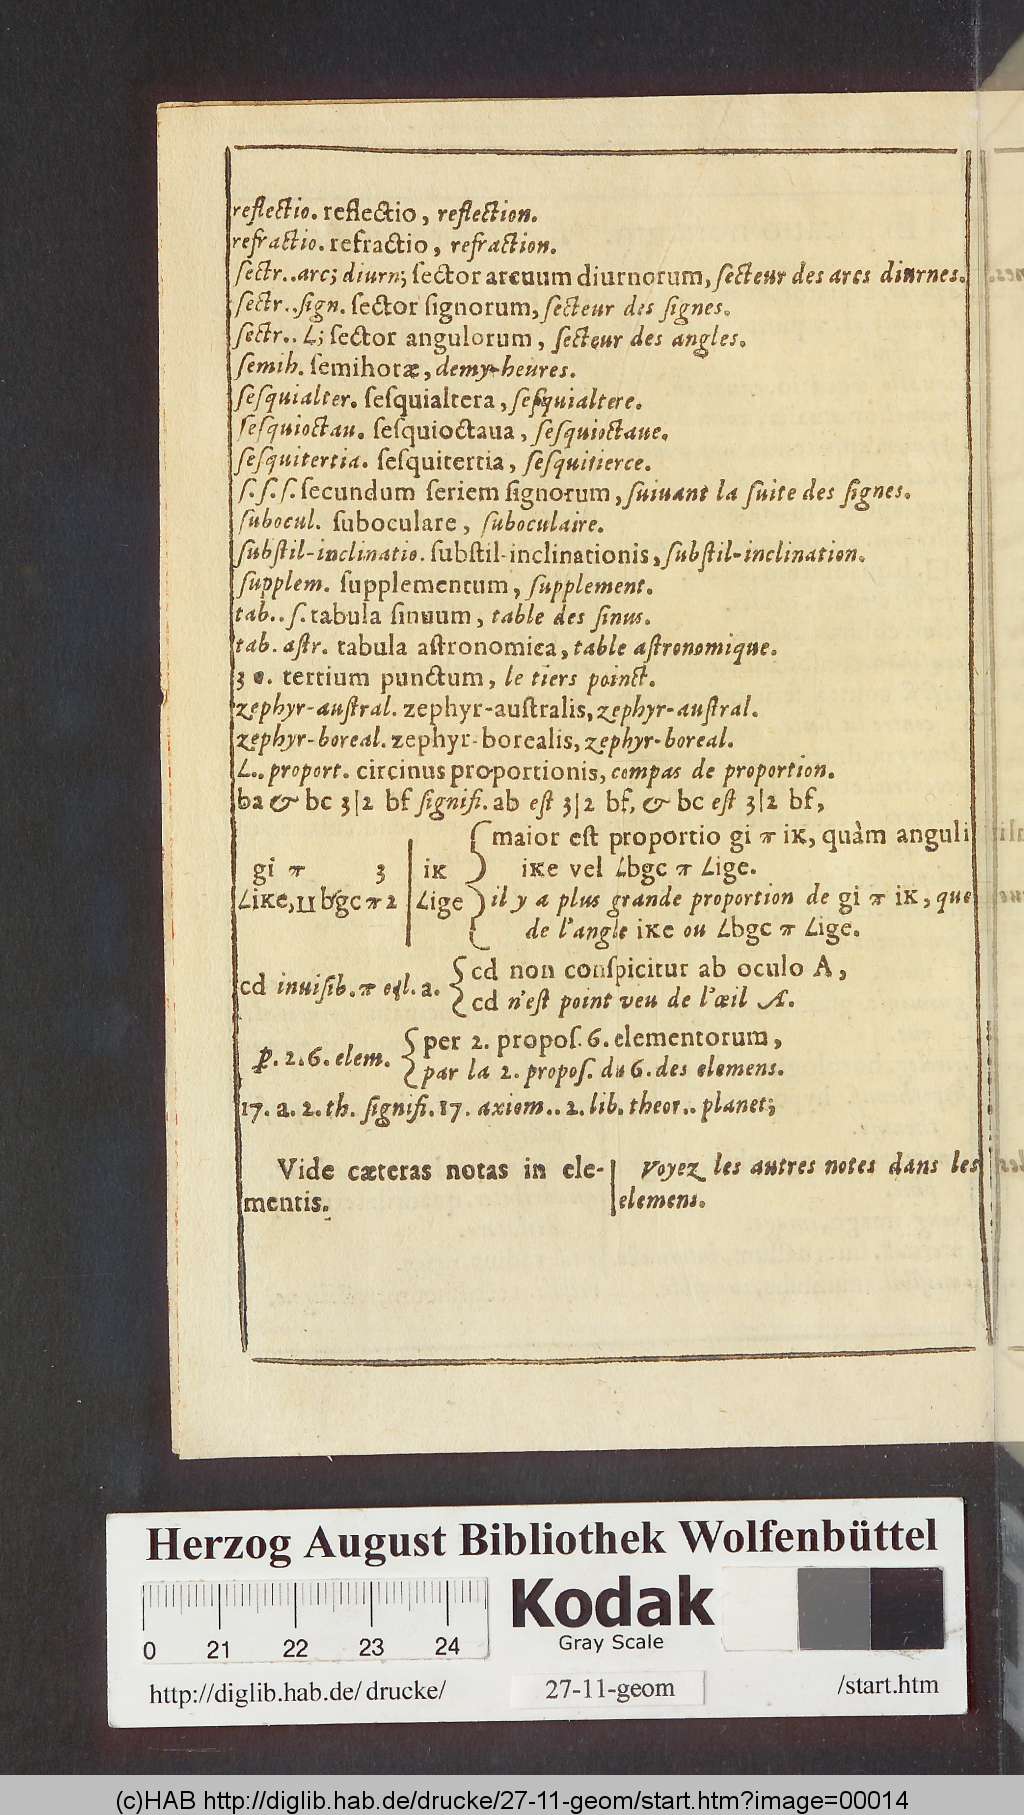 reflectio. reflectio, reflection.
refractio. refractio, refraction.
ſectr..arc; diurn; ſector arcuum diurnorum, ſecteur des arcs diurnes.
ſectr..ſign. ſector ſignorum, ſecteur des ſignes.
ſectr.. L; ſector angulorum, ſecteur des angles.
ſemih. ſemihoræ, demy-heures.
ſeſquialter. ſeſquialtera, ſeſquialtere.
ſeſquioctau. ſeſquioctaua, ſeſquioctaue.
ſeſquitertia. ſeſquitertia, ſeſquitierce.
ſ.ſ.ſ. ſecundum ſeriem ſignorum, ſuiuant la ſuite des ſignes.
ſubocul. ſuboculare, ſuboculaire.
ſubſtil-inclinatio. ſubſtil-inclinationis, ſubſtil-inclination.
ſupplem. ſupplementum, ſupplement.
tab..ſ. tabula ſinuum, table des ſinus.
tab. aſtr. tabula aſtronomica, table aſtronomique.
3 •. tertium punctum, le tiers poinct.
zephyr-auſtral. zephyr-auſtralis, zephyr-auſtral.
zephyr-boreal. zephyr-borealis, zephyr-boreal.
L.. proport. circinus proportionis, compas de proportion.
ba & bc 3|2 bf ſignifi. ab eſt 3|2 bf, & bc eſt 3|2 bf,
maior eſt proportio gi π iĸ, quàm anguli
gi π 3 | iĸ
iĸe vel Lbgc π Lige.
Liĸe, II bgc π 2 | Lige
il y a plus grande proportion de gi π iĸ, que
de l'angle iĸe ou Lbgc π Lige.
cd inuiſib. π œil. a.
cd non conſpicitur ab oculo A,
cd n'eſt point veu de l'œil A.
p. 2. 6. elem.
per 2. propoſ. 6. elementorum,
par la 2. propoſ. du 6. des elemens.
17. a. 2. th. ſignifi. 17. axiom.. 2. lib. theor.. planet;
Vide cæteras notas in ele-
mentis.
Voyez les autres notes dans les
elemens.
Herzog August Bibliothek Wolfenbüttel
Kodak
Gray Scale
0 21 22 23 24
http://diglib.hab.de/drucke/ 27-11-geom /start.htm
(c)HAB http://diglib.hab.de/drucke/27-11-geom/start.htm?image=00014